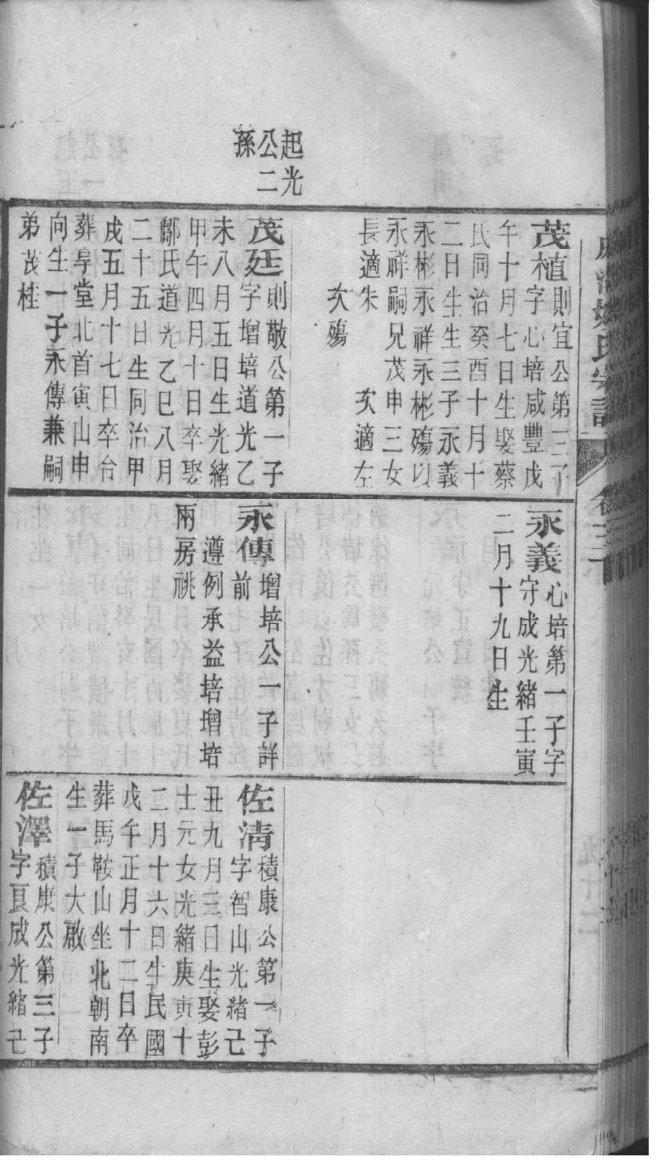 起光
公二
孫
茂植則宜公第三子
字心培咸豐戊
年十月七日生娶蔡
氏同治癸酉十月十
二日生生三子永義
永彬永祥永彬殤以
永祥嗣兄茂申三女
長適朱　次適左
次殤
茂廷則敬公第一子
字增培道光乙
未八月五日生光緒
甲午四月十日卒娶
鄒氏道光乙巳八月
二十五日生同治甲
戌五月十七日卒合
葬享堂北首寅山申
向生一子永傳兼嗣
弟茂桂
永義心培第一子字
守成光緒壬寅
二月十九日生
永傳增培公一子詳
前
遵例承益培增培
兩房祧
佐清積康公第一子
字智山光緒己
丑九月三日生娶彭
士元女光緒庚寅十
二月十六日生民國
戊午正月十二日卒
葬馬鞍山坐北朝南
生一子大啟
佐澤積康公第三子
字夏成光緒己